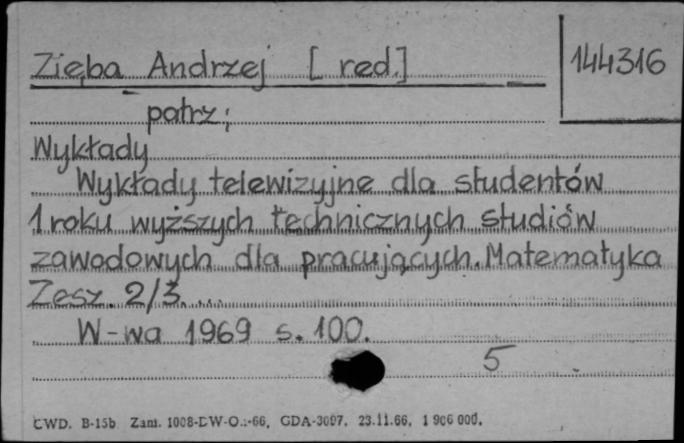 Zięba Andrzej [red.] 144316
patrz;
Wykłady
Wykłady telewizyjne dla studentów
1 roku wyższych technicznych studiów
zawodowych dla pracujących. Matematyka
Zesz. 2/3 ...
W-wa 1969 s. 100.
5
CWD. B-15b Zam. 1008-DW-O.:-66, GDA-3097. 23.11.66. 1 906 000.